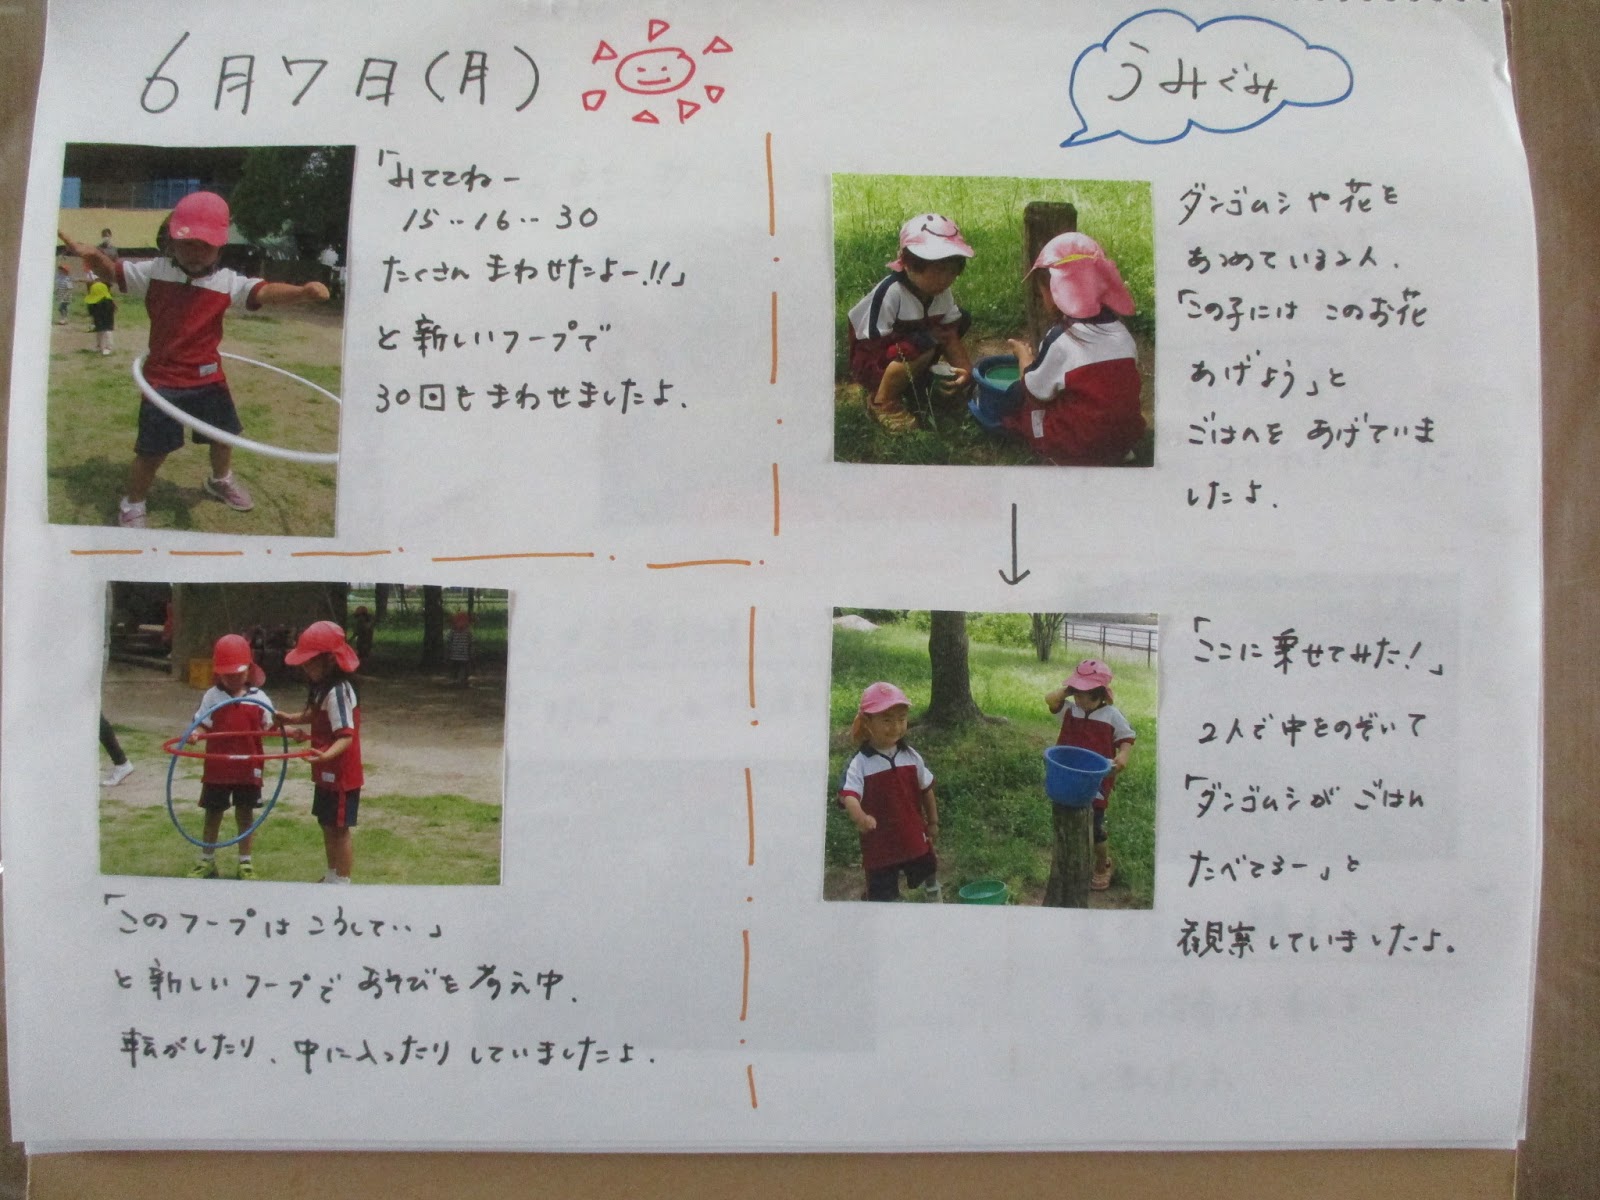 6月7日(月)
うみぐみ
「みててねー
15‥16‥30
たくさん まわせたよー!!」
と新しいフープで
30回もまわせましたよ.
「このフープは こうして‥」
と新しいフープであそびを考え中.
転がしたり、中に入ったりしていましたよ.
ダンゴムシや花を
あつめている2人.
「この子には このお花
あげよう」と
ごはんを あげていま
したよ.
「ここに乗せてみた!」
2人で中をのぞいて
「ダンゴムシが ごはん
たべてるー」と
観察していましたよ.